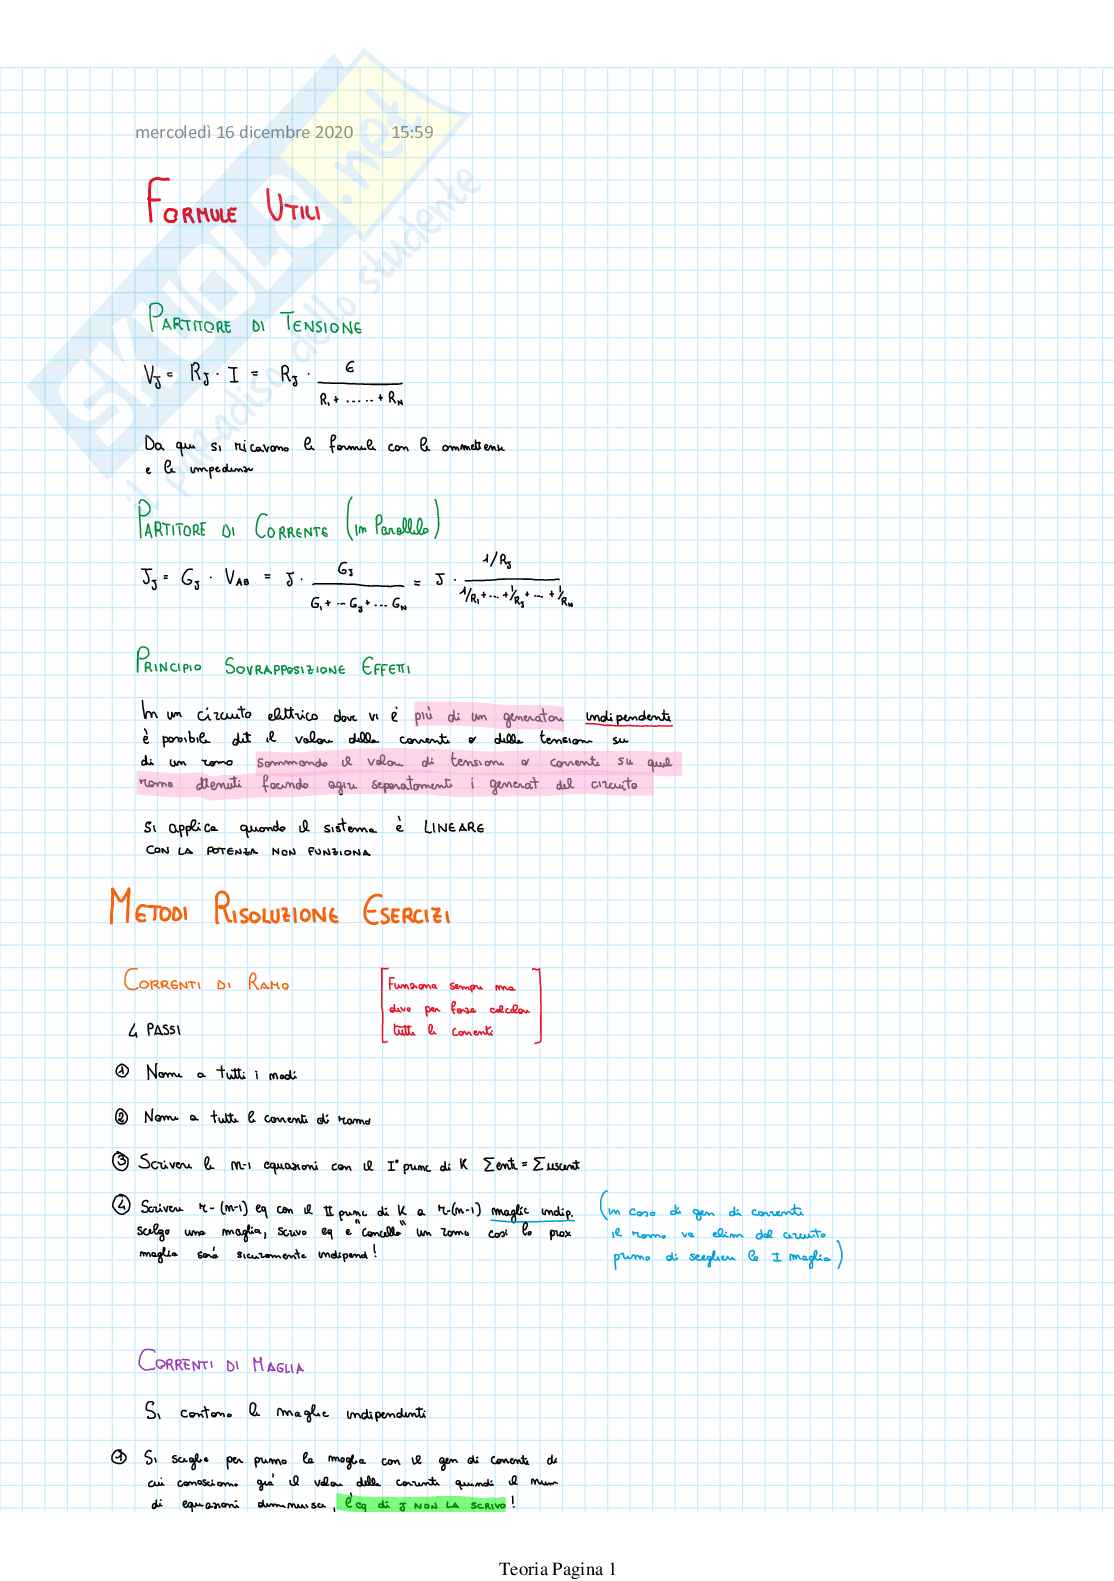 mercoledì 16 dicembre 2020 15:59
SKUOLA.net
il paradiso dello studente
FORMULE UTILI
PARTITORE DI TENSIONE
VJ = RJ · I = RJ · E / (R1 + ..... + RN)
Da qui si ricavano le formule con le ammettenze
e le impedenze
PARTITORE DI CORRENTE (in Parallelo)
JJ = GJ · VAB = J · GJ / (G1 + ... GJ + ... GN) = J · 1/RJ / (1/R1 + ... + 1/RJ + ... + 1/RN)
PRINCIPIO SOVRAPPOSIZIONE EFFETTI
In un circuito elettrico dove vi è più di un generatore indipendente
è possibile det il valore delle correnti o delle tensioni su
di un ramo sommando il valore di tensione o corrente su quel
ramo ottenuti facendo agire separatamente i generat del circuito
Si applica quando il sistema è LINEARE
CON LA POTENZA NON FUNZIONA
METODI RISOLUZIONE ESERCIZI
CORRENTI DI RAMO
[Funziona sempre ma
devo per forza calcolare
tutte le correnti]
4 PASSI
① Nome a tutti i nodi
② Nome a tutte le correnti di ramo
③ Scrivere le n-1 equazioni con il I° princ di K Σent = Σuscent
④ Scrivere r-(n-1) eq con il II princ di K a r-(n-1) maglie indip.
scelgo una maglia, scrivo eq e "cancello" un ramo così la prox
maglia sarà sicuramente indipend!
(in caso di gen di corrente
il ramo va elim dal circuito
prima di scegliere la I maglia)
CORRENTI DI MAGLIA
Si contano le maglie indipendenti
① Si sceglie per primo la maglia con il gen di corrente di
cui conosciamo già il valore della corrente quindi il num
di equazioni diminuisce, l'eq di J NON LA SCRIVO!
Teoria Pagina 1